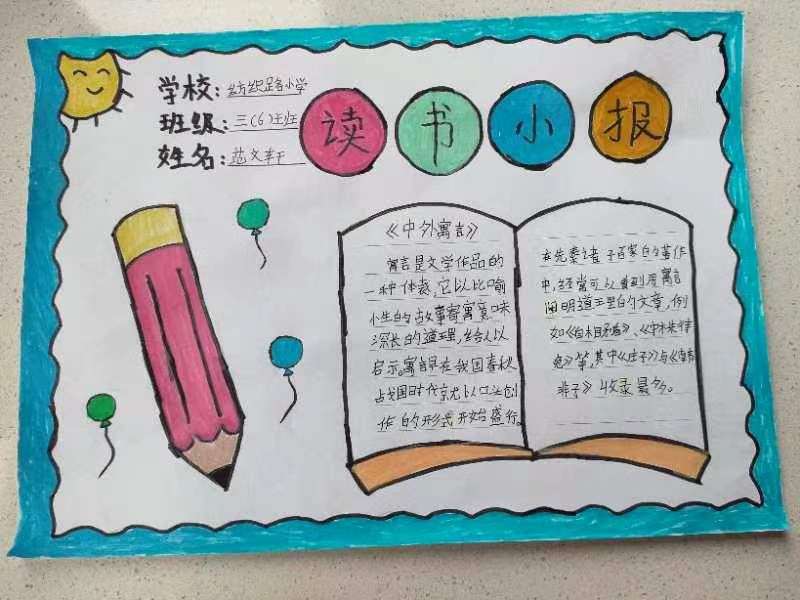 学校：纺织路小学
班级：三（6）班
姓名：范文轩
读书小报
《中外寓言》
寓言是文学作品的
一种体裁，它以比喻
小生的故事寄寓意味
深长的道理，给人以
启示。寓言早在我国春秋
战国时代就以口头创
作的形式开始盛行。
在先秦诸子百家的著作
中，经常可以看到用寓言
阐明道理的文章，例
如《自相矛盾》、《守株待
兔》等，其中《庄子》与《韩
非子》收录最多。